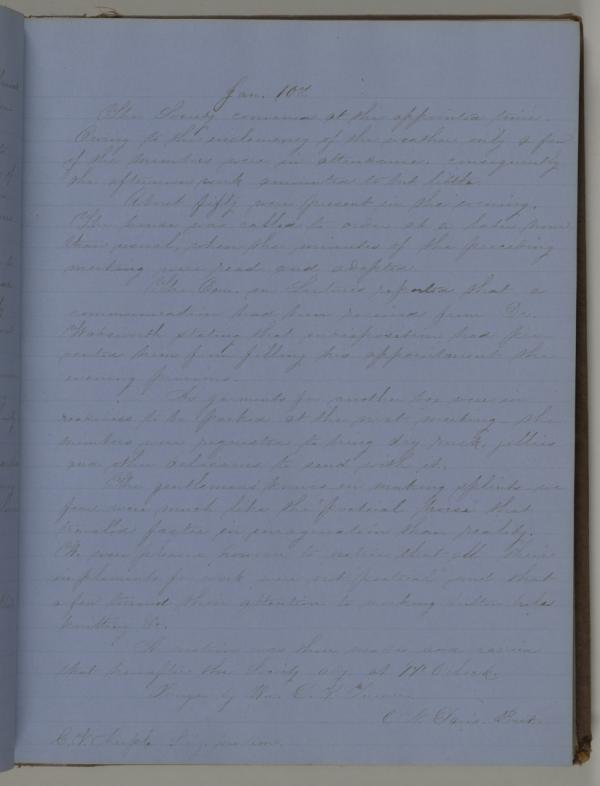 Jan. 10th
The Society convened at the appointed time.
Owing to the inclemency of the weather only a few
of the members were in attendance, consequently
the afternoon work amounted to but little.
About fifty were present in the evening.
The house was called to order at a later hour
than usual, when the minutes of the preceding
meeting were read and adopted.
The Com. on Lectures reported that a
communication had been received from Dr.
Wadsworth stating that indisposition had pre-
vented him from filling his appointment the
evening previous.
As garments for another box were in
readiness to be packed at the next meeting the
members were requested to bring dry rusk, jellies
and other delicacies to send with it.
The gentlemens knives in making splints we
fear were much like the "poetical horse" that
travelled faster in imagination than reality.
We were pleased however to notice that all their
implements for work were not "poetical" and that
a few turned their attention to working button holes
knitting &c.
A motion was then made and carried
that hereafter the Society adj. at 9 O'clock.
Prayer by C.
C. Davis. Pres.
C. V. Sec.